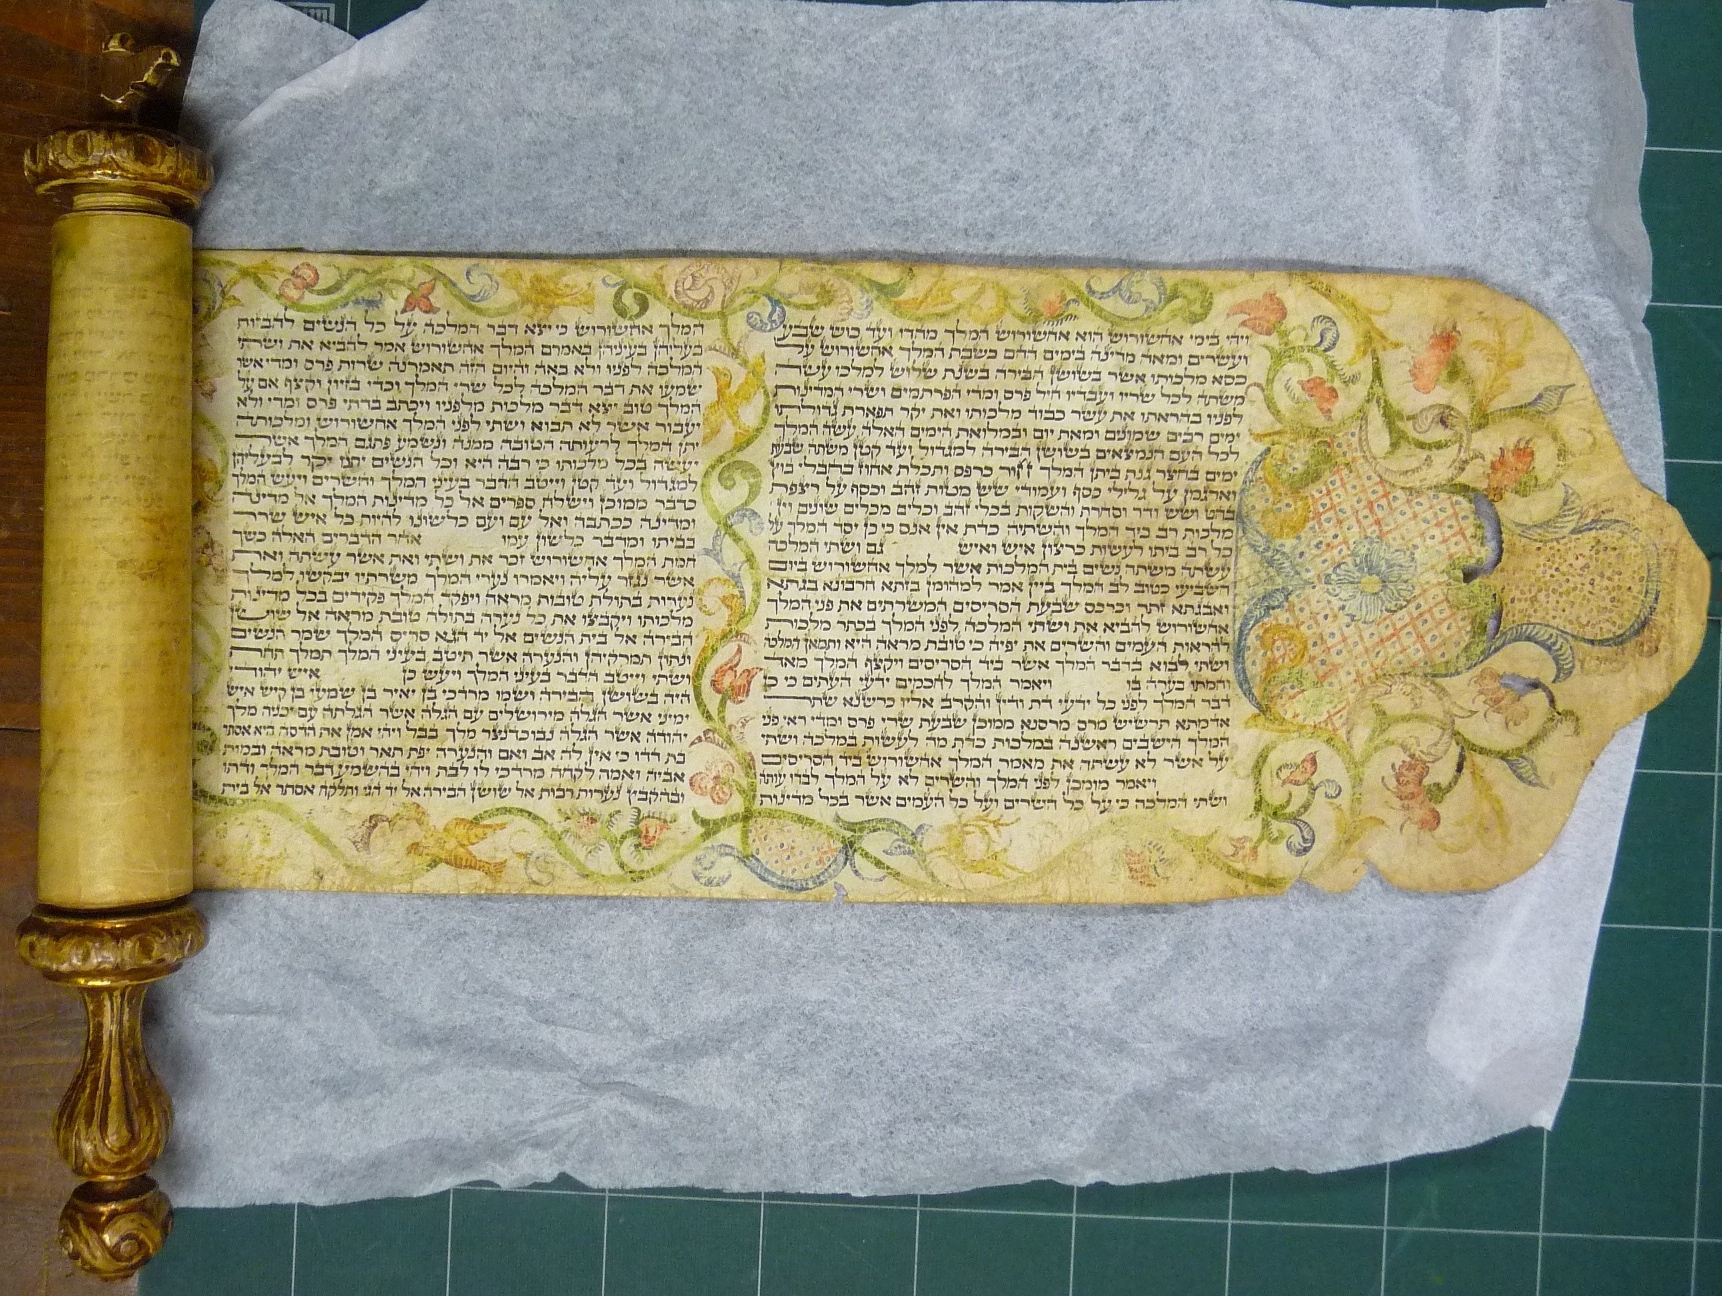 ויהי בימי אחשורוש הוא אחשורוש המלך מהדו ועד כוש שבע
ועשרים ומאה מדינה בימים ההם כשבת המלך אחשורוש על
כסא מלכותו אשר בשושן הבירה בשנת שלוש למלכו עשה
משתה לכל שריו ועבדיו חיל פרס ומדי הפרתמים ושרי המדינות
לפניו בהראתו את עשר כבוד מלכותו ואת יקר תפארת גדולתו
ימים רבים שמונים ומאת יום ובמלואת הימים האלה עשה המלך
לכל העם הנמצאים בשושן הבירה למגדול ועד קטן משתה שבעת
ימים בחצר גנת ביתן המלך חור כרפס ותכלת אחוז בחבלי בוץ
וארגמן על גלילי כסף ועמודי שש מטות זהב וכסף על רצפת
בהט ושש ודר וסחרת והשקות בכלי זהב וכלים מכלים שונים ויין
מלכות רב כיד המלך והשתיה כדת אין אנס כי כן יסד המלך על
כל רב ביתו לעשות כרצון איש ואיש גם ושתי המלכה
עשתה משתה נשים בית המלכות אשר למלך אחשורוש ביום
השביעי כטוב לב המלך ביין אמר למהומן בזתא חרבונא בגתא
ואבגתא זתר וכרכס שבעת הסריסים המשרתים את פני המלך
אחשורוש להביא את ושתי המלכה לפני המלך בכתר מלכות
להראות העמים והשרים את יפיה כי טובת מראה היא ותמאן המלכה
ושתי לבוא בדבר המלך אשר ביד הסריסים ויקצף המלך מאד
וחמתו בערה בו ויאמר המלך לחכמים ידעי העתים כי כן
דבר המלך לפני כל ידעי דת ודין והקרב אליו כרשנא שתר
אדמתא תרשיש מרס מרסנא ממוכן שבעת שרי פרס ומדי ראי פני
המלך הישבים ראשנה במלכות כדת מה לעשות במלכה ושתי
על אשר לא עשתה את מאמר המלך אחשורוש ביד הסריסים
ויאמר מומכן לפני המלך והשרים לא על המלך לבדו עותה
ושתי המלכה כי על כל השרים ועל כל העמים אשר בכל מדינות
המלך אחשורוש כי יצא דבר המלכה על כל הנשים להבזות
בעליהן בעיניהן באמרם המלך אחשורוש אמר להביא את ושתי
המלכה לפניו ולא באה והיום הזה תאמרנה שרות פרס ומדי אשר
שמעו את דבר המלכה לכל שרי המלך וכדי בזיון וקצף אם על
המלך טוב יצא דבר מלכות מלפניו ויכתב בדתי פרס ומדי ולא
יעבור אשר לא תבוא ושתי לפני המלך אחשורוש ומלכותה
יתן המלך לרעותה הטובה ממנה ונשמע פתגם המלך אשר
יעשה בכל מלכותו כי רבה היא וכל הנשים יתנו יקר לבעליהן
למגדול ועד קטן וייטב הדבר בעיני המלך והשרים ויעש המלך
כדבר ממוכן וישלח ספרים אל כל מדינות המלך אל מדינה
ומדינה ככתבה ואל עם ועם כלשונו להיות כל איש שרר
בביתו ומדבר כלשון עמו אחר הדברים האלה כשך
חמת המלך אחשורוש זכר את ושתי ואת אשר עשתה ואת
אשר נגזר עליה ויאמרו נערי המלך משרתיו יבקשו למלך
נערות בתולות טובות מראה ויפקד המלך פקידים בכל מדינות
מלכותו ויקבצו את כל נערה בתולה טובת מראה אל שושן
הבירה אל בית הנשים אל יד הגא סריס המלך שמר הנשים
ונתון תמרקיהן והנערה אשר תיטב בעיני המלך תמלך תחת
ושתי וייטב הדבר בעיני המלך ויעש כן איש יהודי
היה בשושן הבירה ושמו מרדכי בן יאיר בן שמעי בן קיש איש
ימיני אשר הגלה מירושלים עם הגלה אשר הגלתה עם יכניה מלך
יהודה אשר הגלה נבוכדנצר מלך בבל ויהי אמן את הדסה היא אסתר
בת דדו כי אין לה אב ואם והנערה יפת תאר וטובת מראה ובמות
אביה ואמה לקחה מרדכי לו לבת ויהי בהשמע דבר המלך ודתו
ובהקבץ נערות רבות אל שושן הבירה אל יד הגי ותלקח אסתר אל בית